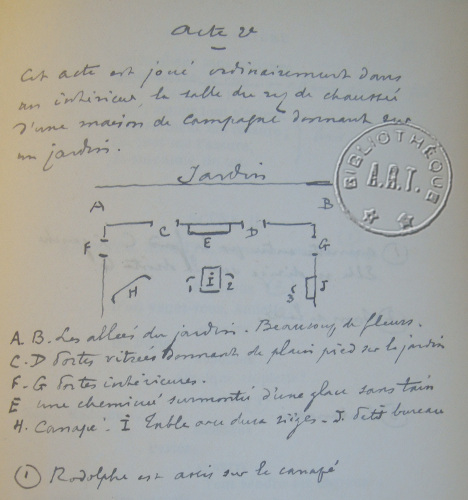 Acte 2e
Cet acte est joué ordinairement dans
un intérieur, la salle du rez de chaussée
d'une maison de campagne donnant sur
un jardin.
Jardin
BIBLIOTHÈQUE A.R.T.
A B
C D
E
F G
H 1 I 2 3 J
A. B. Les allées du jardin. Beaucoup de fleurs.
C. D Portes vitrées donnant de plain pied sur le jardin
F. G Portes intérieures.
E une cheminée surmontée d'une glace sans tain
H. Canapé. I Table avec deux sièges - J. Petit bureau
① Rodolphe est assis sur le canapé